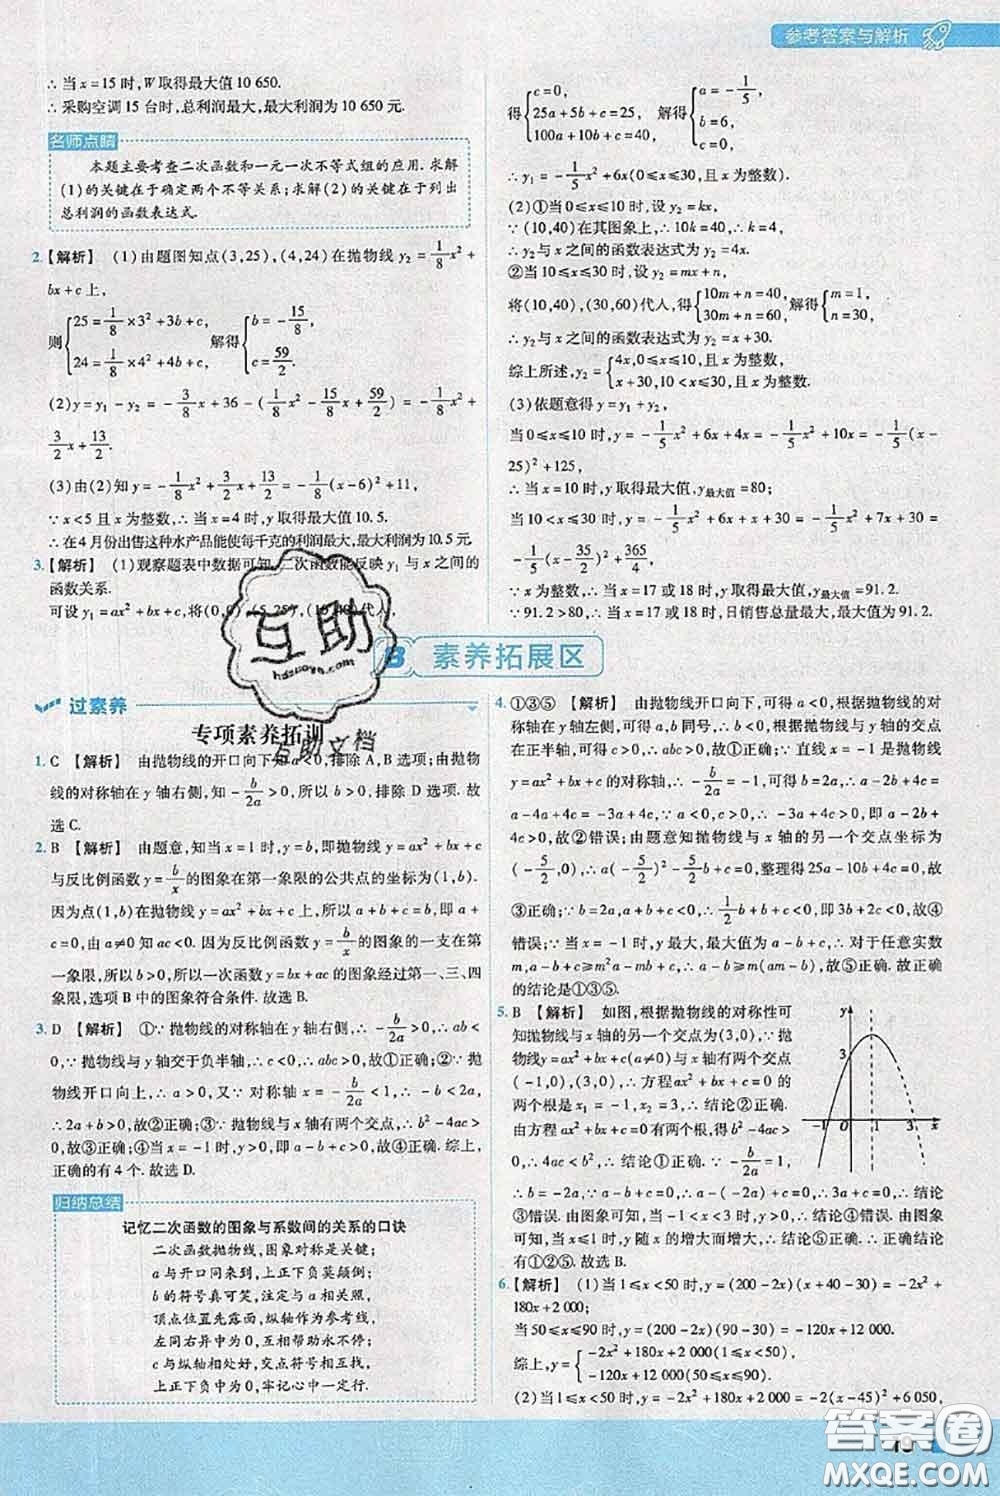 参考答案与解析
∴ 当 x=15 时,W 取得最大值 10 650.
∴ 采购空调 15 台时,总利润最大,最大利润为 10 650 元.
名师点睛
本题主要考查二次函数和一元一次不等式组的应用.求解
(1)的关键在于确定两个不等关系;求解(2)的关键在于列出
总利润的函数表达式.
2.【解析】 (1)由题图知点(3,25),(4,24)在抛物线 y₂=1/8x²+
bx+c 上,
则{25=1/8×3²+3b+c, 24=1/8×4²+4b+c, 解得{b=-15/8, c=59/2.
(2)y=y₁-y₂=-3/8x+36-(1/8x²-15/8x+59/2)=-1/8x²+
3/2x+13/2.
(3)由(2)知 y=-1/8x²+3/2x+13/2=-1/8(x-6)²+11,
∵ x<5 且 x 为整数,∴ 当 x=4 时,y 取得最大值 10.5.
∴ 在 4 月份出售这种水产品能使每千克的利润最大,最大利润为 10.5 元.
3.【解析】 (1)观察题表中数据可知,二次函数能反映 y₁ 与 x 之间的
函数关系.
可设 y₁=ax²+bx+c,将(0,0),(5,25),(10,40)代入,
得{c=0, 25a+5b+c=25, 100a+10b+c=40, 解得{a=-1/5, b=6, c=0.
∴ y₁=-1/5x²+6x(0≤x≤30,且 x 为整数).
(2)①当 0≤x≤10 时,设 y₂=kx,
∵ (10,40)在其图象上,∴ 10k=40,∴ k=4,
∴ y₂与 x 之间的函数表达式为 y₂=4x.
②当 10≤x≤30 时,设 y₂=mx+n,
将(10,40),(30,60)代入,得{10m+n=40, 30m+n=60, 解得{m=1, n=30,
∴ y₂与 x 之间的函数表达式为 y₂=x+30.
综上所述,y₂={4x,0≤x≤10,且 x 为整数, x+30,10<x≤30,且 x 为整数.
(3)依题意得 y=y₁+y₂,
当 0≤x≤10 时,y=-1/5x²+6x+4x=-1/5x²+10x=-1/5(x-
25)²+125,
∴ 当 x=10 时,y 取得最大值,y最大值=80;
当 10<x≤30 时,y=-1/5x²+6x+x+30=-1/5x²+7x+30=
-1/5(x-35/2)²+365/4,
∵ x 为整数,∴ 当 x=17 或 18 时,y 取得最大值,y最大值=91.2.
∵ 91.2>80,∴ 当 x=17 或 18 时,日销售总量最大,最大值为 91.2.
互助
hdzuoye.com
互助文档
B 素养拓展区
过素养
专项素养拓训
1. C 【解析】 由抛物线的开口向下知 a<0,排除 A,B 选项;由抛物
线的对称轴在 y 轴右侧,知 -b/2a>0,所以 b>0,排除 D 选项.故
选 C.
2. B 【解析】 由题意,知当 x=1 时,y=b,即抛物线 y=ax²+bx+c
与反比例函数 y=b/x的图象在第一象限的公共点的坐标为(1,b).
因为点(1,b)在抛物线 y=ax²+bx+c 上,所以 a+b+c=b,即 a+
c=0,由 a≠0 知 ac<0.因为反比例函数 y=b/x的图象的一支在第
一象限,所以 b>0,所以一次函数 y=bx+ac 的图象经过第一、三、四
象限,选项 B 中的图象符合条件.故选 B.
3. D 【解析】 ①∵ 抛物线的对称轴在 y 轴右侧,∴ -b/2a>0,∴ ab<
0,∵ 抛物线与 y 轴交于负半轴,∴ c<0,∴ abc>0,故①正确;②∵ 抛
物线开口向上,∴ a>0,又∵ 对称轴 x=-b/2a<1,∴ -b<2a,
∴ 2a+b>0,故②正确;③∵ 抛物线与 x 轴有两个交点,∴ b²-4ac>
0,故③正确;④当 x=-1 时,y>0,即 a-b+c>0,故④正确.综上,
正确的有 4 个.故选 D.
归纳总结
记忆二次函数的图象与系数间的关系的口诀
二次函数抛物线,图象对称是关键;
a 与开口同来到,上正下负莫颠倒;
b 的符号真可笑,注定与 a 相关照;
顶点位置先露面,纵轴作为参考线,
左同右异中为 0,互相帮助永不停;
c 与纵轴相处好,交点符号相互找,
上正下负零为 0,牢记心中一定行.
4. ①③⑤ 【解析】 由抛物线开口向下,可得 a<0,由抛物线的对
称轴在 y 轴左侧,可得 a,b 同号,∴ b<0,由抛物线与 y 轴的交点
在正半轴,可得 c>0,∴ abc>0,故①正确;∵ 直线 x=-1 是抛物
线 y=ax²+bx+c 的对称轴,∴ -b/2a=-1,可得 b=2a,a-2b+4c=
a-4a+4c=-3a+4c,∵ a<0,c>0,∴ -3a+4c>0,即 a-2b+
4c>0,故②错误;由题意知抛物线与 x 轴的另一个交点坐标为
(-5/2,0),∴ a(-5/2)²-5/2b+c=0,整理得 25a-10b+4c=0,故
③正确;∵ b=2a,a+b+c<0,∴ 1/2b+b+c<0,即 3b+2c<0,故④
错误;∵ 当 x=-1 时,y 最大,最大值为 a-b+c,∴ 对于任意实数
m,a-b+c≥m²a-mb+c,∴ a-b≥m(am-b),故⑤正确.故正确
的结论是①③⑤.
5. B 【解析】 如图,根据抛物线的对称性可
知抛物线与 x 轴的另一个交点为(3,0),∵ 抛
物线 y=ax²+bx+c(a≠0)与 x 轴有两个交点
(-1,0),(3,0),∴ 方程 ax²+bx+c=0 的
两个根是 x₁=-1,x₂=3,∴ 结论②正确.
由方程 ax²+bx+c=0 有两个根,得 b²-4ac>
0,∴ 4ac-b²<0,∴ 结论①正确.∵ -b/2a=1,
∴ b=-2a,∵ a-b+c=0,∴ c=-3a,∴ 结论
③错误.由图象可知,当 y>0 时,-1<x<3,∴ 结论④错误.由图象
可知,当 x<1 时,y 随 x 的增大而增大,∴ 结论⑤正确.综上,正确的
有①②⑤.故选 B.
y
3
-1 O 1 3 x
6.【解析】 (1)当 1≤x<50 时,y=(200-2x)(x+40-30)=-2x²+
180x+2 000;
当 50≤x≤90 时,y=(200-2x)(90-30)=-120x+12 000.
综上,y={-2x²+180x+2 000(1≤x<50), -120x+12 000(50≤x≤90).
(2)当 1≤x<50 时,y=-2x²+180x+2 000=-2(x-45)²+6 050,
19
答案圈
MXQE.COM